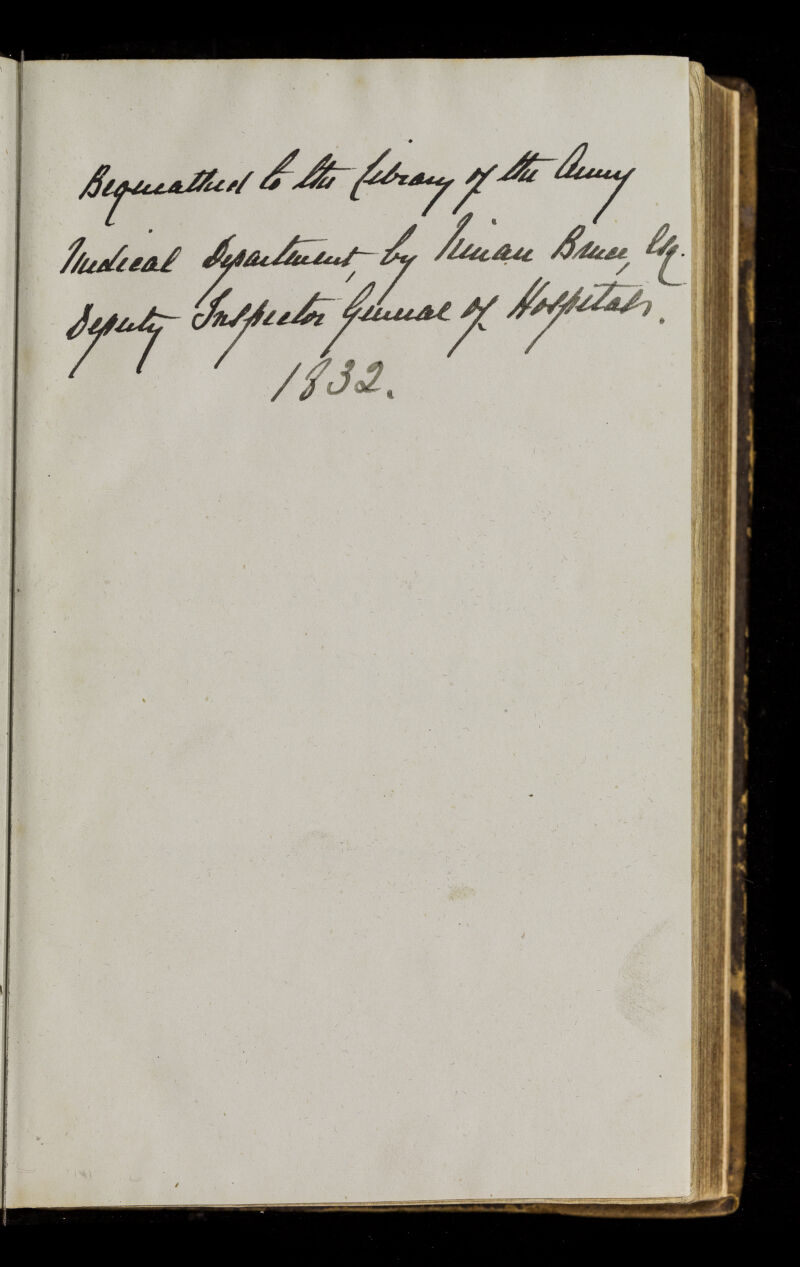 Bequeathed to the Library of the Army
Medical Department, by Ninian Bruce, Esq.
Deputy Inspector General of Hospitals.
1832.